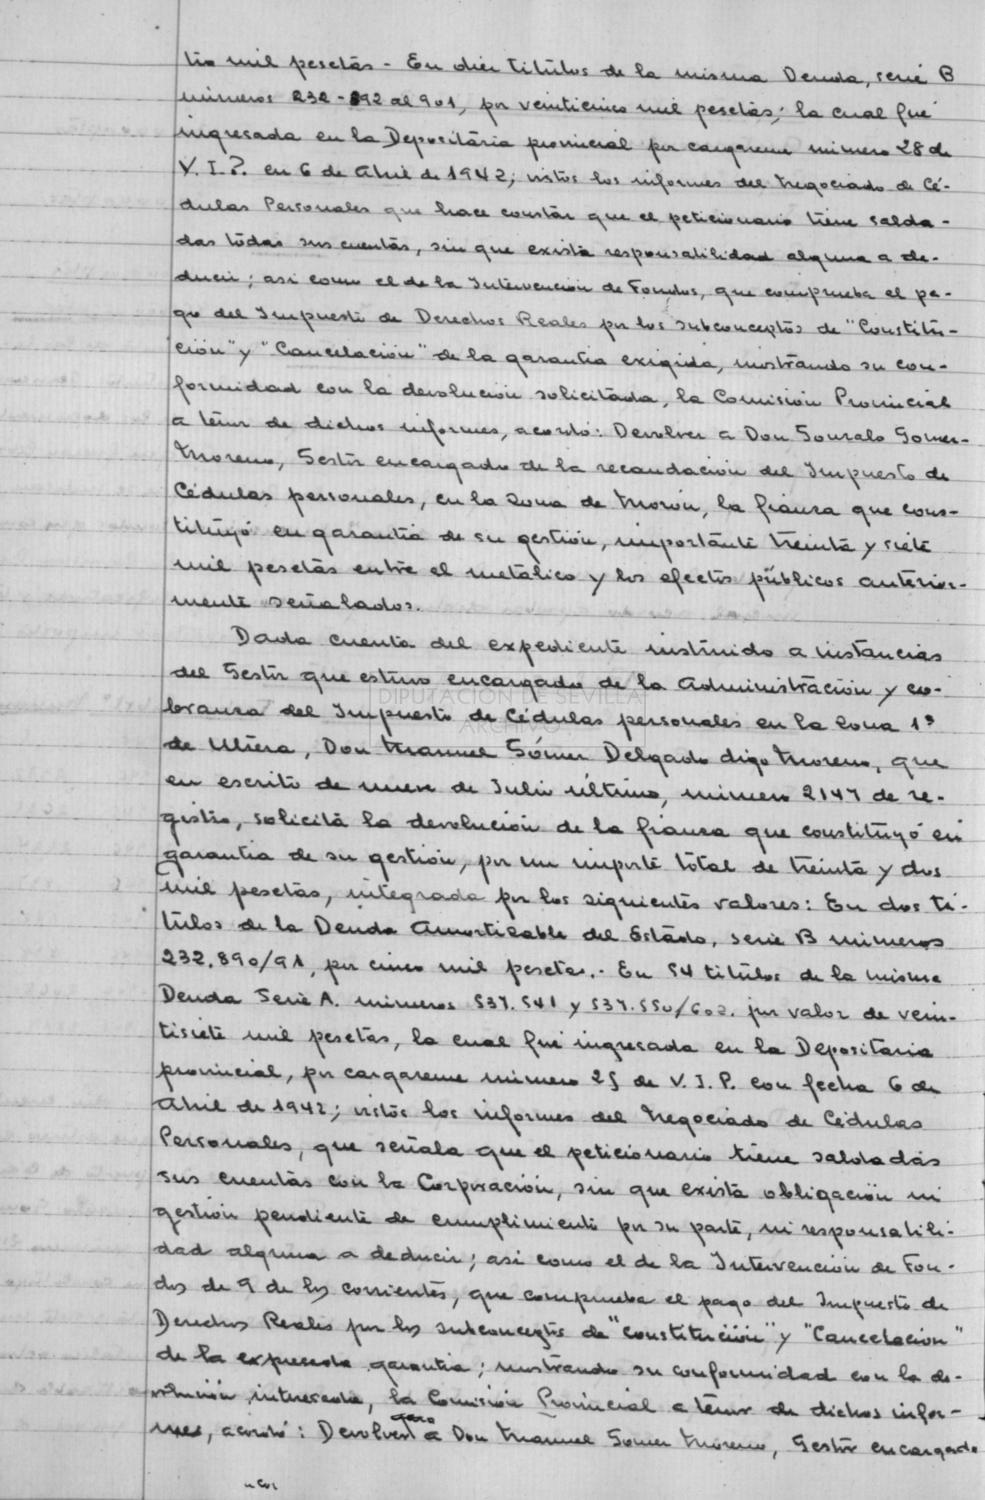 tro mil pesetas - En diez titulos de la misma Deuda, serie B
números 232-892 al 901, por veinticinco mil pesetas; la cual fué
ingresada en la Depositaria provincial por cargareme número 28 de
V.I.P. en 6 de Abril de 1942; vistos los informes del Negociado de Cé-
dulas Personales que hace constar que el peticionario tiene salda-
das todas sus cuentas, sin que exista responsabilidad alguna a de-
ducir; asi como el de la Intervención de Fondos, que comprueba el pa-
go del Impuesto de Derechos Reales por los subconceptos de "Constitu-
ción" y "Cancelación" de la garantia exigida, mostrando su con-
formidad con la devolucion solicitada, la Comisión Provincial
a tenor de dichos informes, acordó: Devolver a Don Gonzalo Gomez-
Moreno, Gestor encargado de la recaudación del Impuesto de
Cédulas personales, en la zona de Morón, la fianza que cons-
tituyó en garantia de su gestión, importante treinta y siete
mil pesetas entre el metálico y los efectos públicos anterior-
mente señalados.
Dada cuenta del expediente instruido a instancias
del Gestor que estuvo encargado de la Administración y co-
branza del Impuesto de Cédulas personales en la zona 1ª
de Utrera, Don Manuel Gómez Delgado digo Moreno, que
en escrito de nueve de Julio último, número 2147 de re-
gistro, solicita la devolución de la fianza que constituyó en
garantia de su gestión, por un importe total de treinta y dos
mil pesetas, integrada por los siguientes valores: En dos ti-
tulos de la Deuda Amortizable del Estado, serie B números
232.890/91, por cinco mil pesetas.- En 54 titulos de la misma
Deuda Serie A. números 537.541 y 537.550/602. por valor de vein-
tisiete mil pesetas, la cual fué ingresada en la Depositaria
provincial, por cargareme número 25 de V.I.P. con fecha 6 de
Abril de 1942; vistos los informes del Negociado de Cédulas
Personales, que señala que el peticionario tiene saldadas
sus cuentas con la Corporación, sin que exista obligación ni
gestión pendiente de cumplimiento por su parte, ni responsabili-
dad alguna a deducir; asi como el de la Intervención de Fon-
dos de 9 de los corrientes, que comprueba el pago del Impuesto de
Derechos Reales por los subconceptos de "Constitución" y "Cancelacion"
de la expresada garantia; mostrando su conformidad con la de-
volución interesada, la Comisión Provincial a tenor de dichos infor-
mes, acordó: Devolver a Don Manuel Gomez Moreno, Gestor encargado
DIPUTACION DE SEVILLA
ARCHIVO